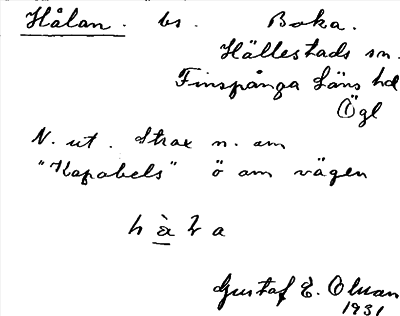 Hålan. bs. Boka.
Hällestads sn.
Finspånga läns hd
Ögl
N. ut. Strax n. om
"Kapabels" ö om vägen
Gustaf E. Olsson
1931